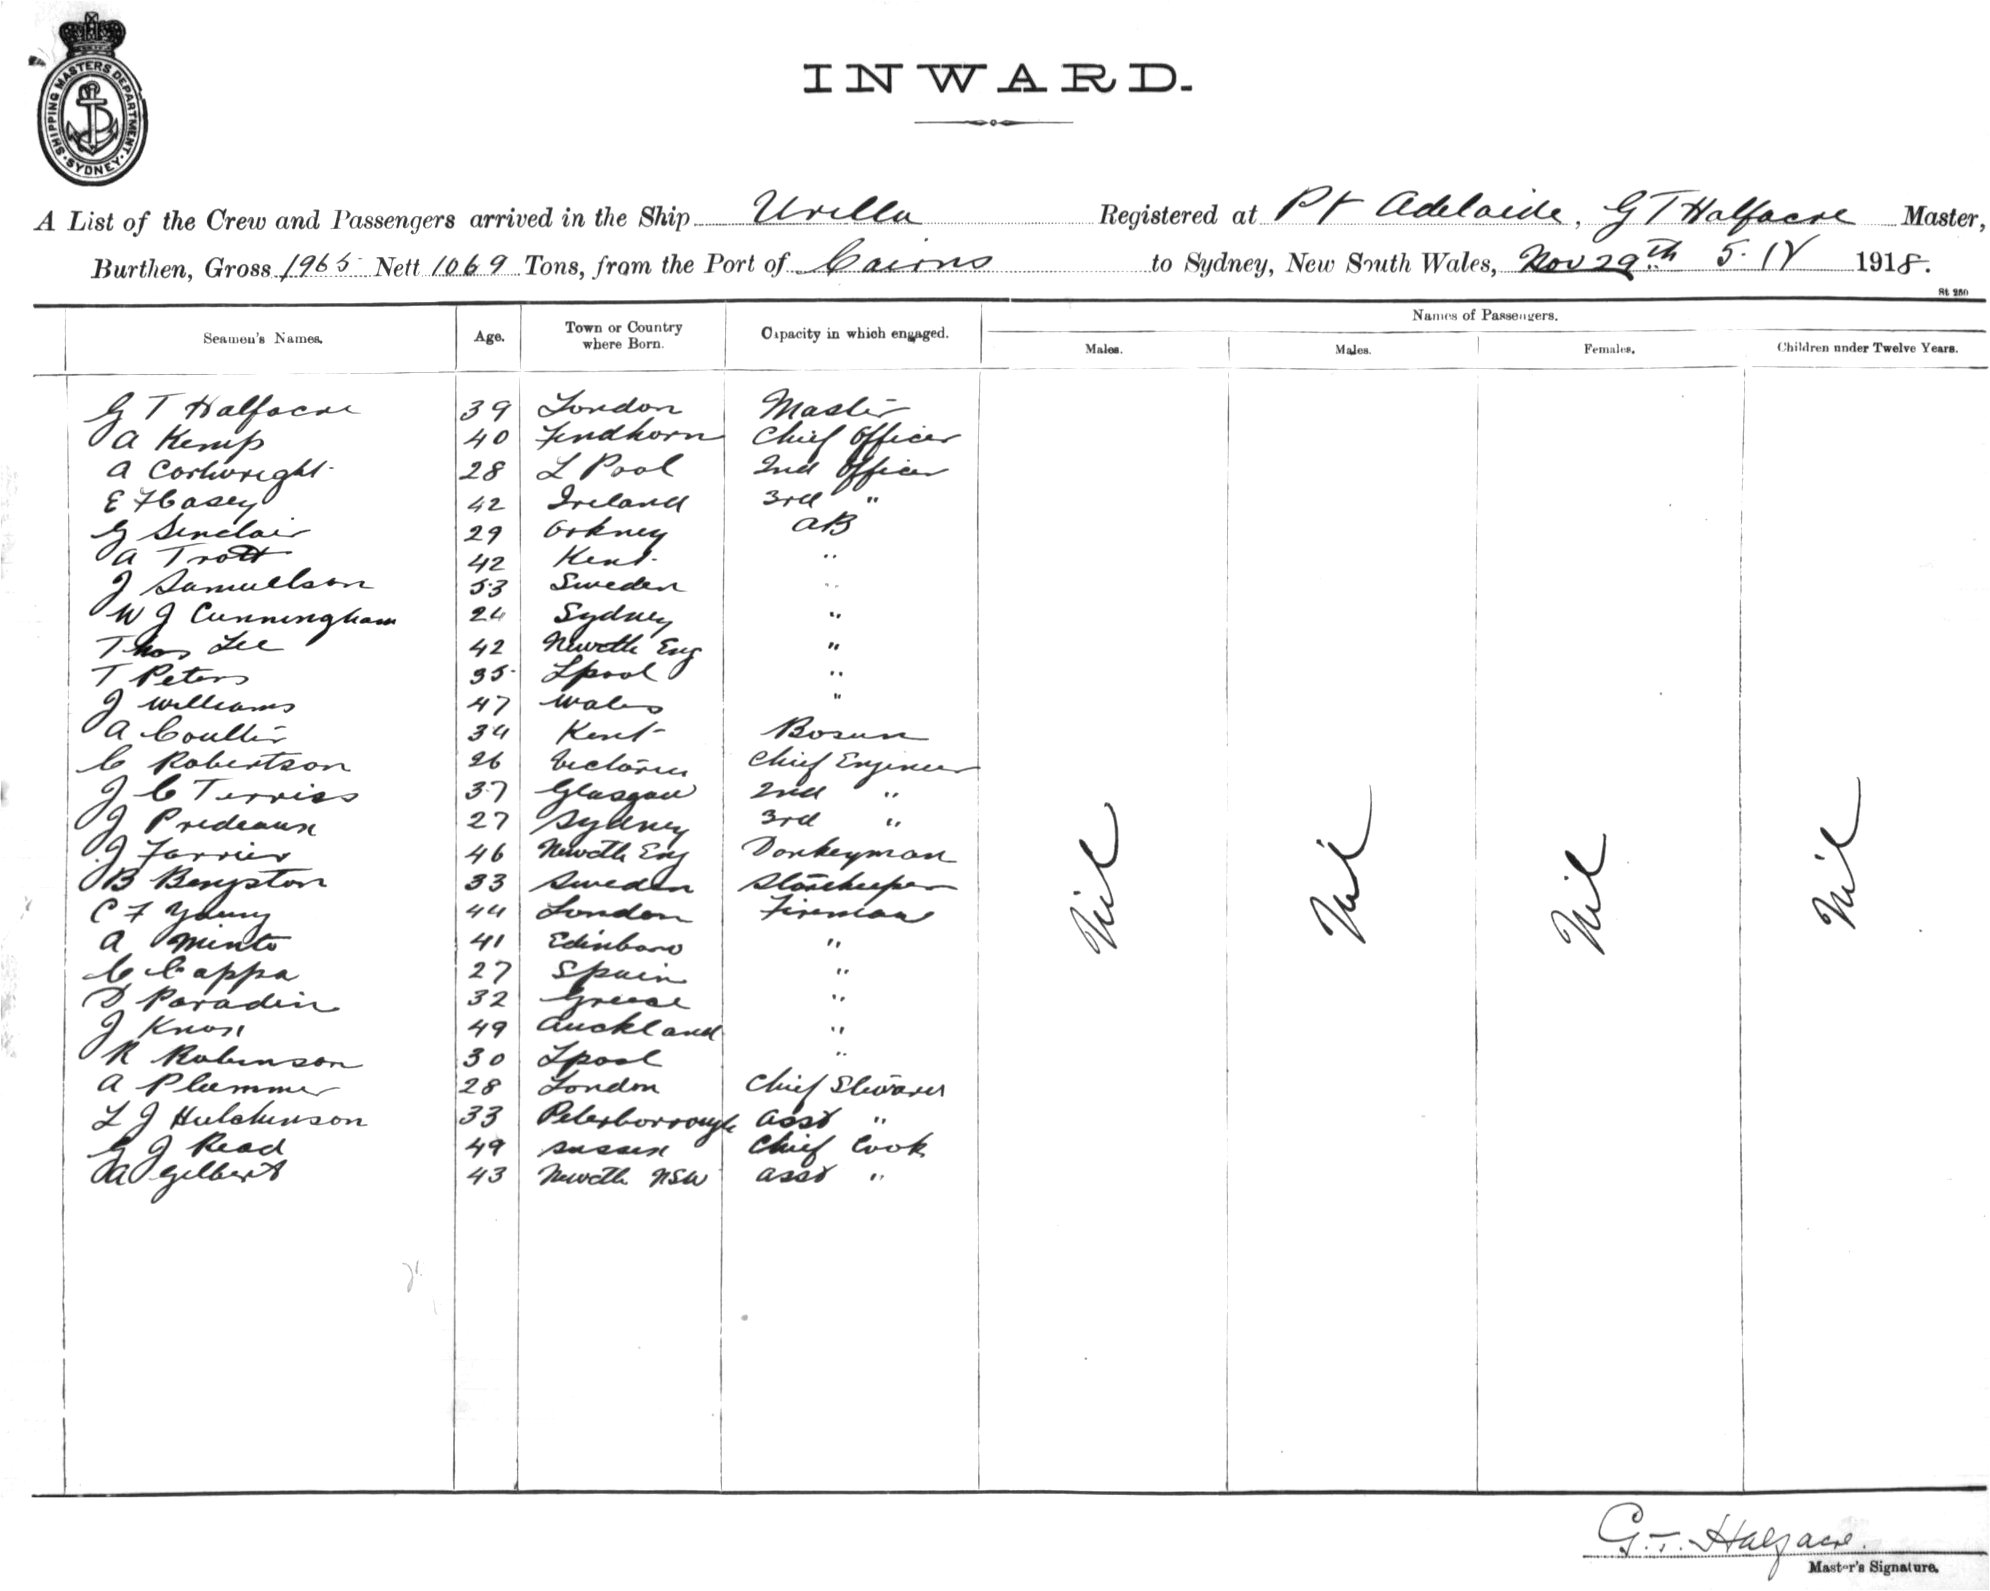 SHIPPING MASTERS DEPARTMENT · SYDNEY ·
INWARD.
A List of the Crew and Passengers arrived in the Ship Urilla Registered at Pt Adelaide, G T Halfacre Master,
Burthen, Gross 1965 Nett 1069 Tons, from the Port of Cairns to Sydney, New South Wales, Nov 29th 1918.
St 250
Seamen's Names. Age. Town or Country where Born. Capacity in which engaged. Names of Passengers.
Males. Males. Females. Children under Twelve Years.
G T Halfacre 39 London Master
A Kemp 40 Findhorn Chief Officer
A Cartwright 28 L Pool 2nd Officer
E F Casey 42 Ireland 3rd "
G Sinclair 29 Orkney AB
A Trott 42 Kent "
J Samuelson 53 Sweden "
W J Cunningham 24 Sydney "
Thos Lee 42 Newctle Eng "
T Peters 35 Lpool "
J Williams 47 Wales "
A Coulter 34 Kent Bosun
C Robertson 26 Victoria Chief Engineer
J C Terriss 37 Glasgow 2nd "
J Prideaux 27 Sydney 3rd "
J Farrier 46 Newctle Eng Donkeyman
B Bengston 33 Sweden Storekeeper
C F Young 44 London Fireman
A Minto 41 Edinboro "
C Cappa 27 Spain "
D Paradin 32 Greece "
J Knox 49 Auckland "
R Robinson 30 Lpool "
A Plummer 28 London Chief Steward
L J Hutchinson 33 Peterborrough Asst "
G J Read 49 Sussex Chief Cook
A Gilbert 43 Newctle NSW Asst "
Nil Nil Nil Nil
G. T. Halfacre.
Master's Signature.